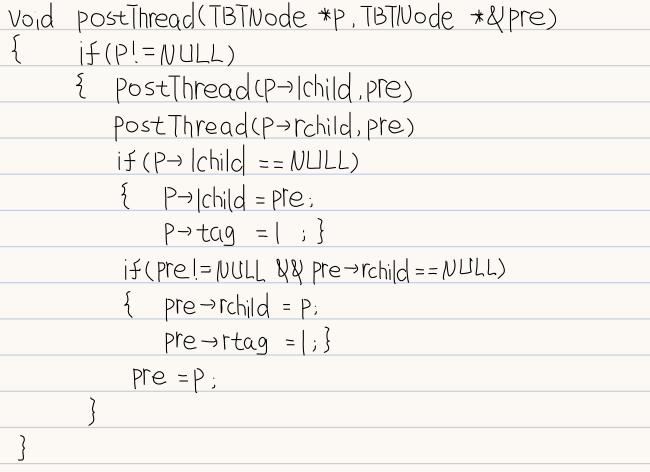 void postThread(TBTNode *p,TBTNode *&pre)
{ if(p!=NULL)
{ postThread(p→lchild,pre)
postThread(p→rchild,pre)
if(p→lchild ==NULL)
{ p→lchild =pre;
p→tag =1 ;}
if(pre!=NULL && pre→rchild==NULL)
{ pre→rchild = p;
pre→rtag =1;}
pre =p;
}
}